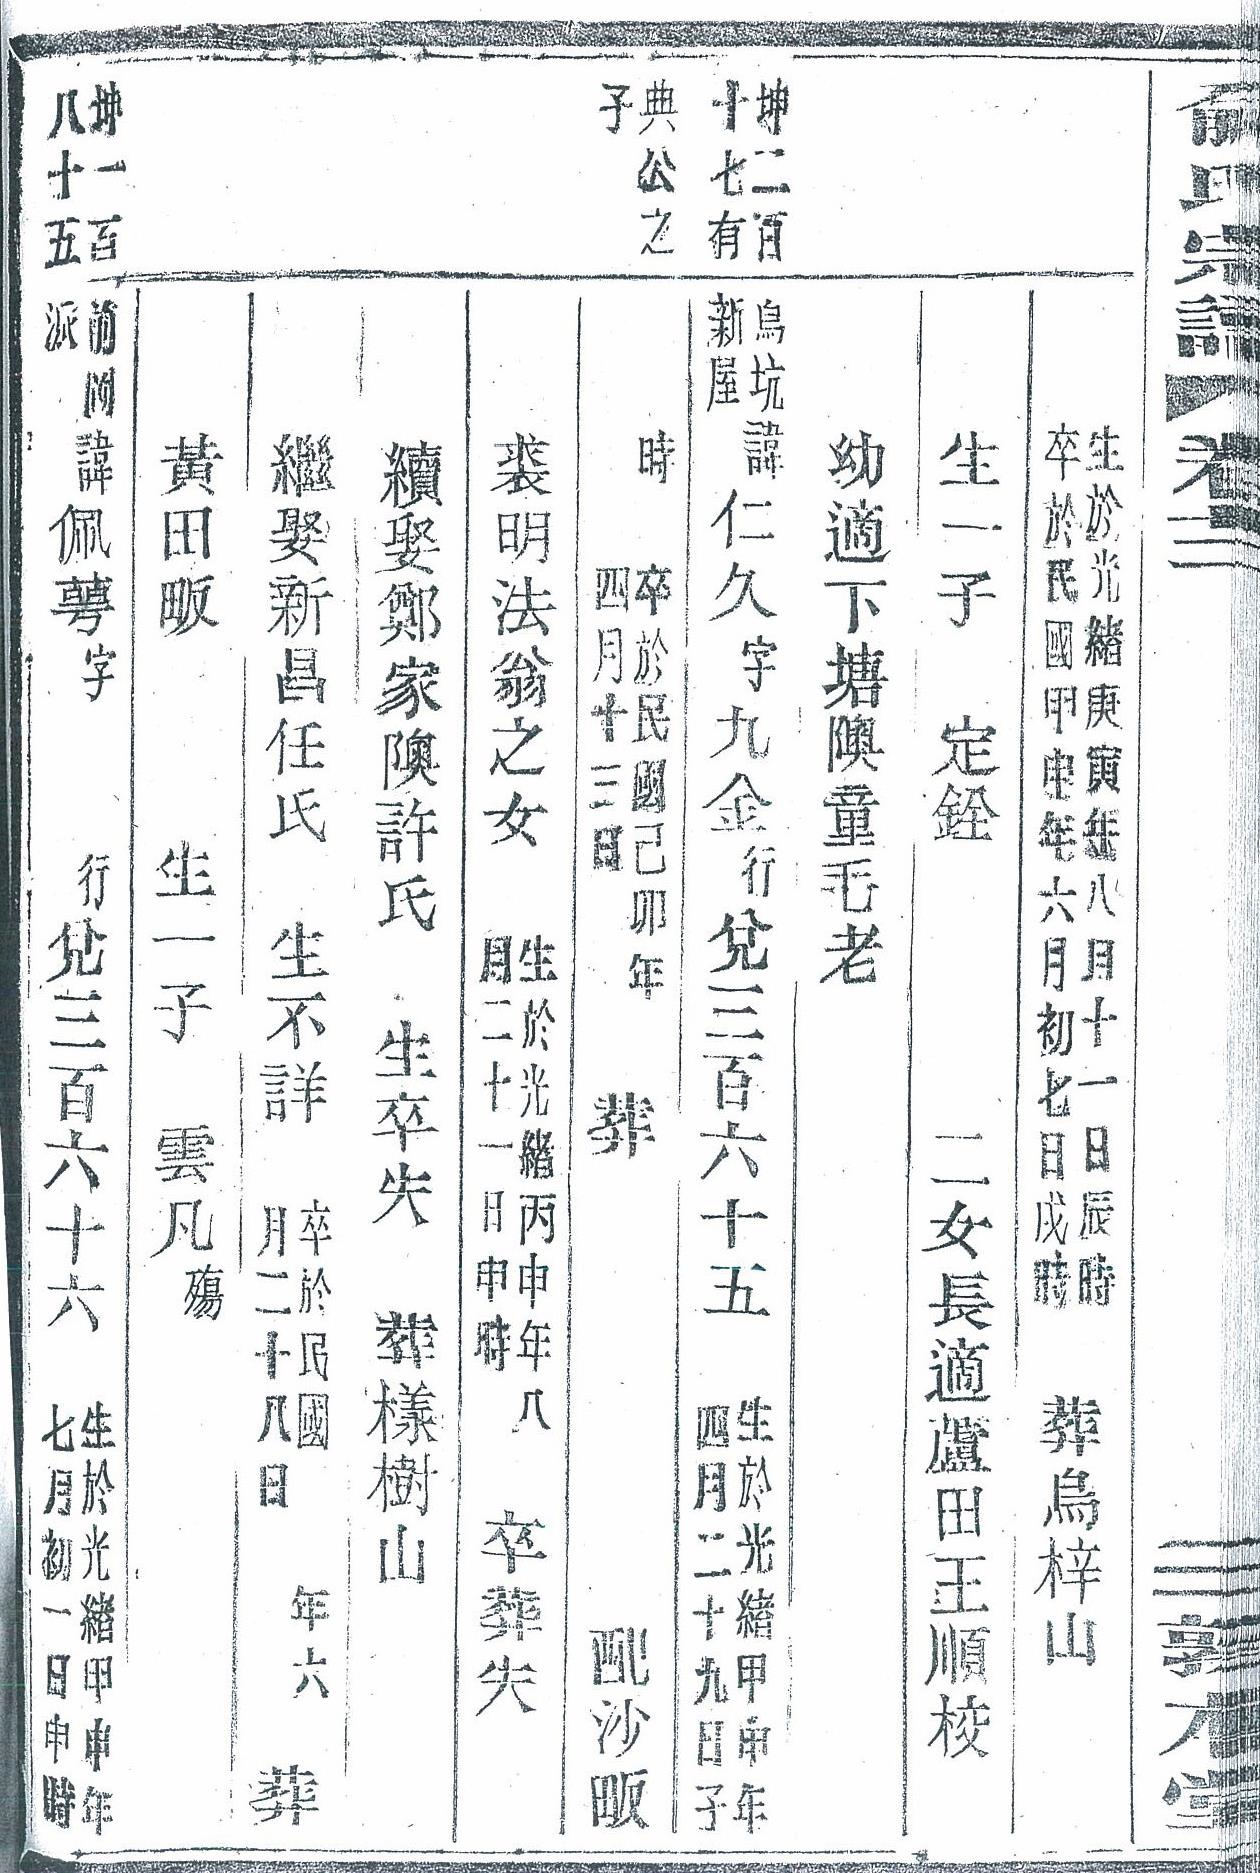 俞氏宗譜 卷二 敦本堂
生於光緒庚寅年八月十一日辰時
卒於民國甲申年六月初七日戌時
葬烏梓山
生一子 定銓 二女長適蘆田王順校
幼適下塘隩童毛老
坤二百
十七有
典公之
子
烏坑
新屋
諱仁久字九金行兌三百六十五
生於光緒甲申年
四月二十九日子
時
卒於民國己卯年
四月十三日
葬 配沙畈
裘明法翁之女
生於光緒丙申年八
月二十一日申時
卒葬失
續娶鄭家隩許氏 生卒失 葬樣樹山
繼娶新昌任氏 生不詳
卒於民國 年六
月二十八日
葬
黃田畈 生一子 雲凡殤
坤一百
八十五
派
諱佩萼字 行兌三百六十六
生於光緒甲申年
七月初一日申時